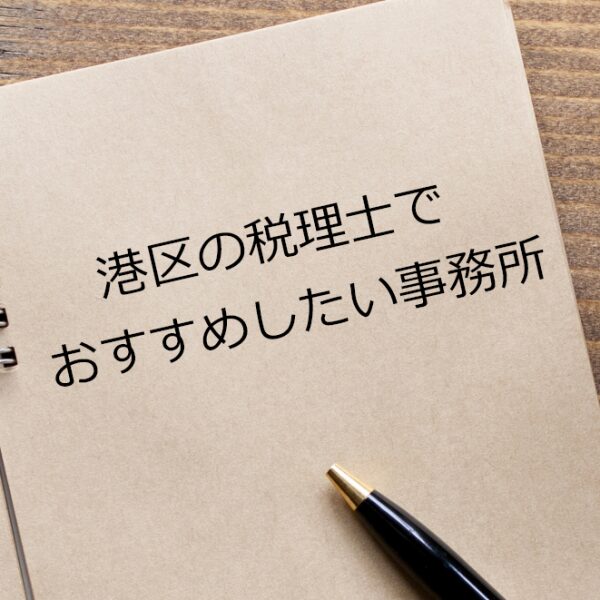 港区の税理士で
おすすめしたい事務所